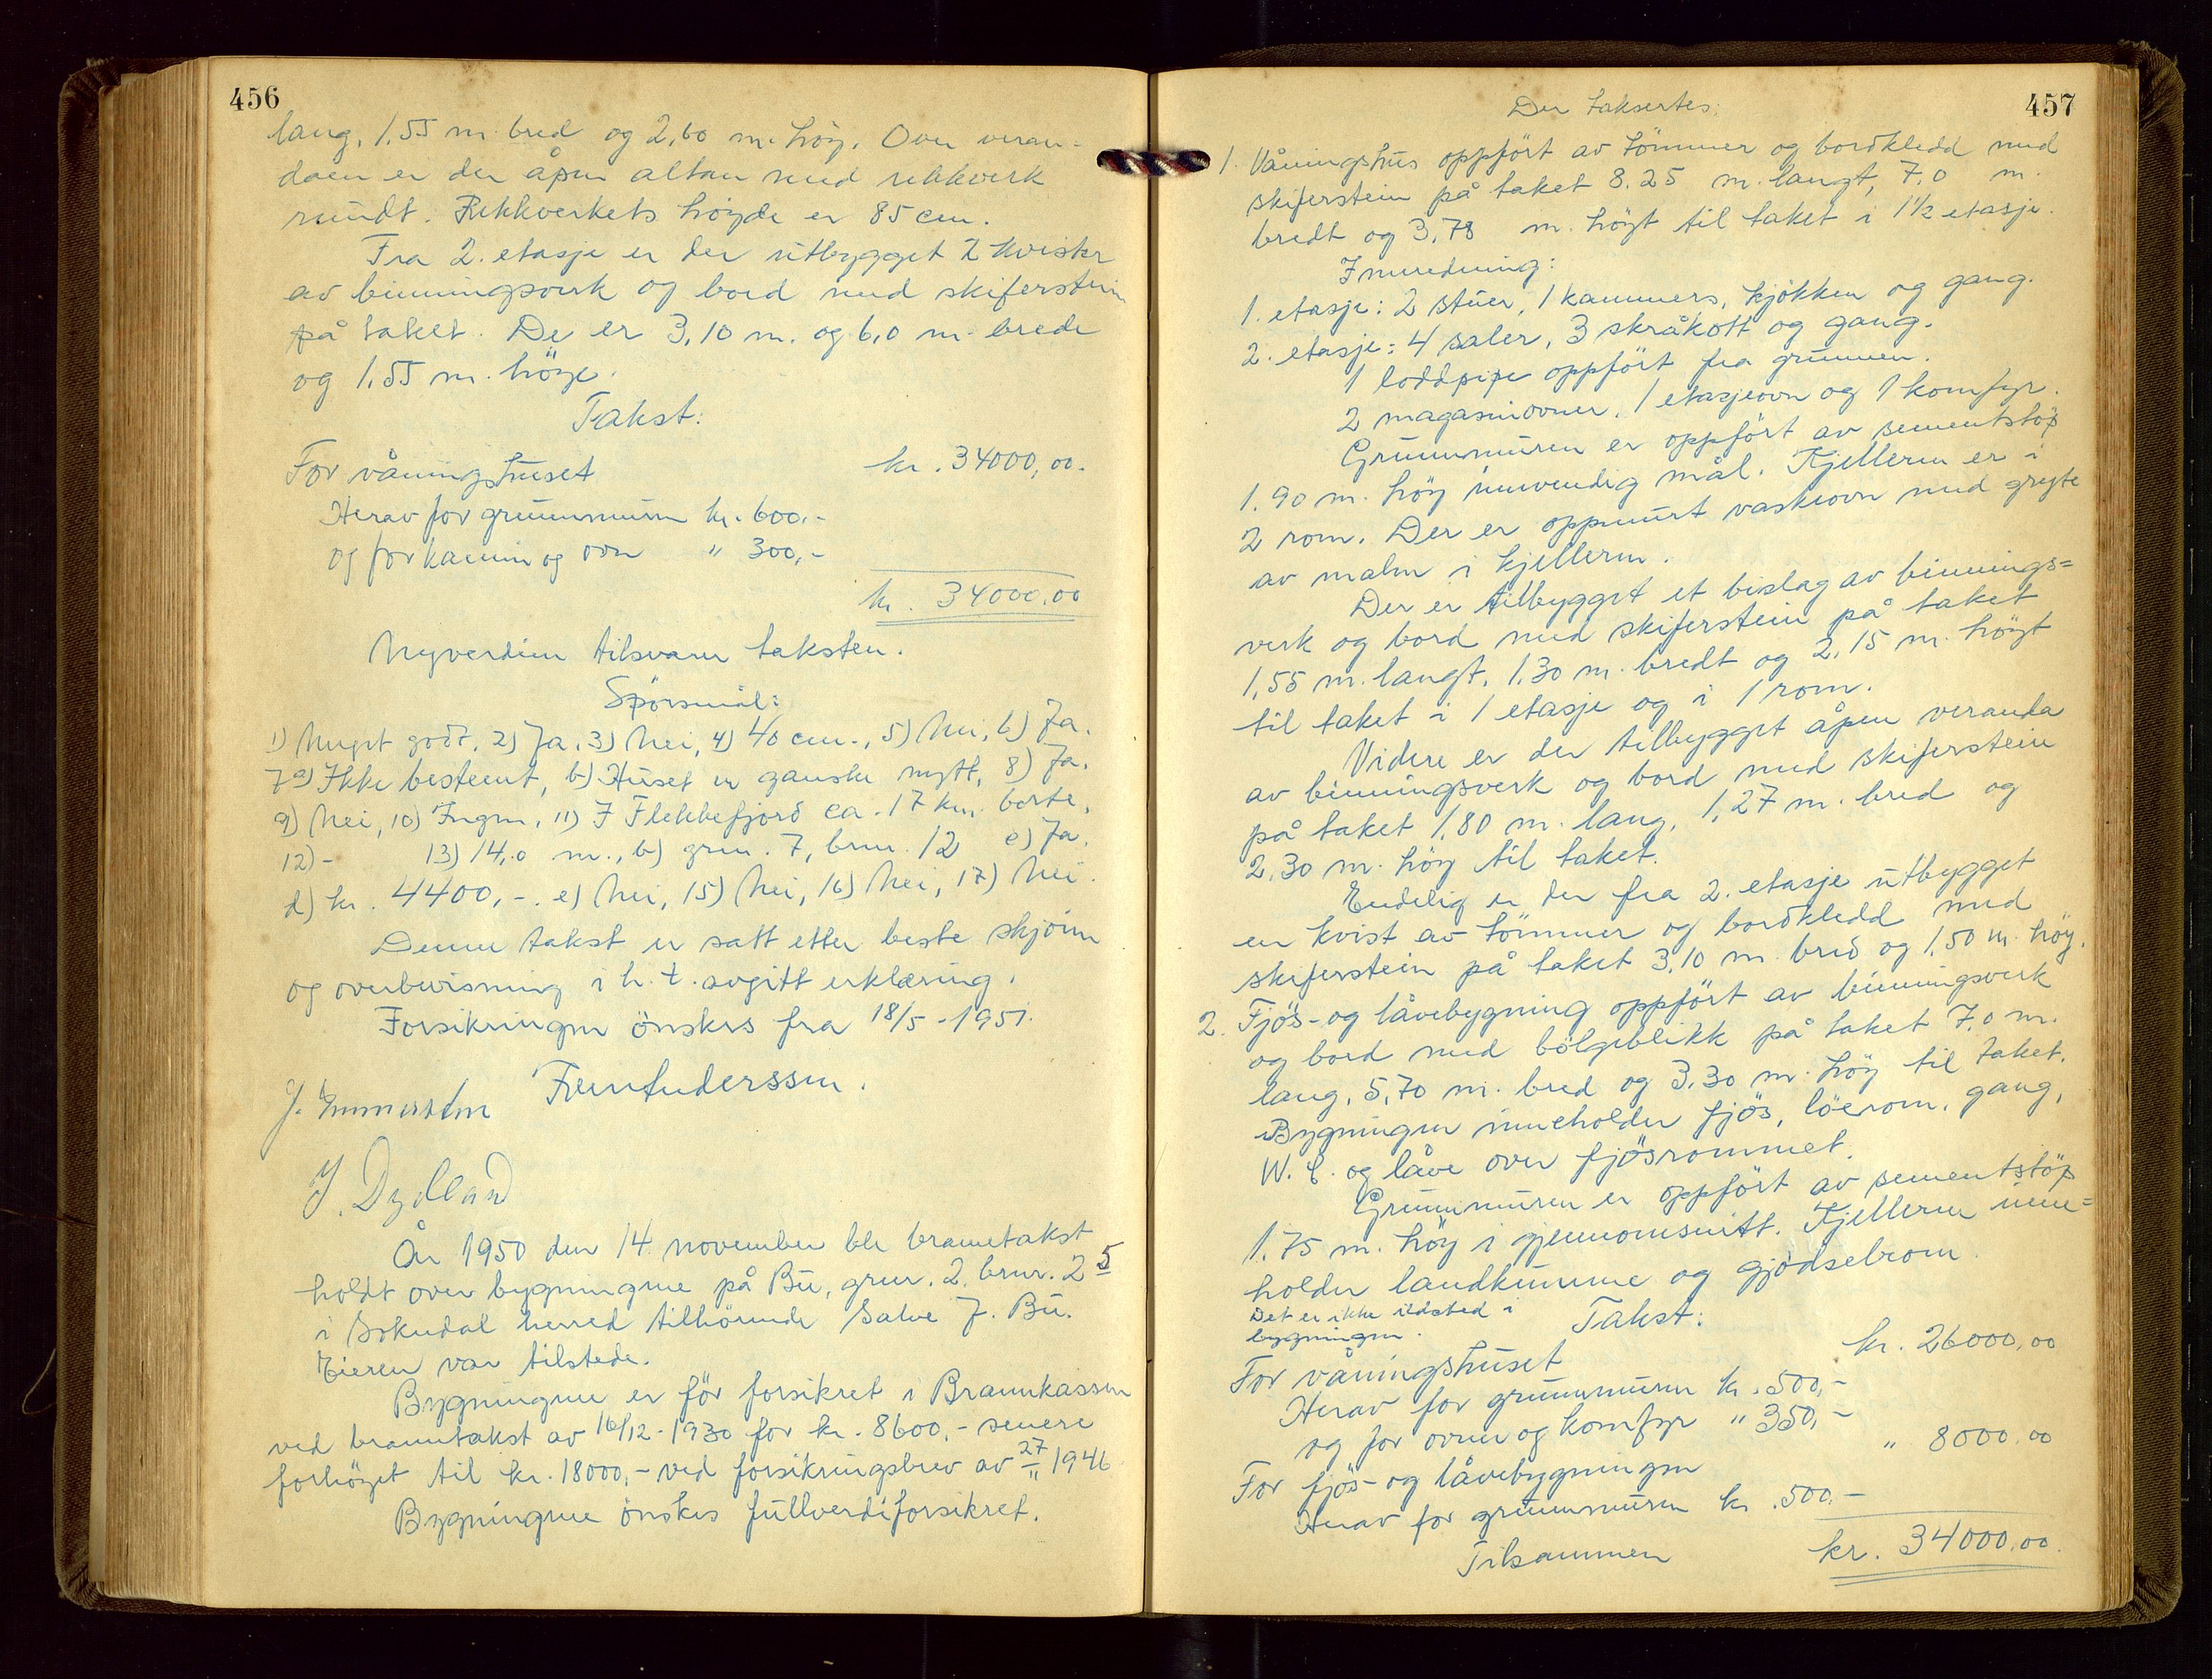 456
lang, 1,55 m. bred og 2,60 m. høy. Over veran-
daen er der åpen altan med rekkverk
rundt. Rekkverkets høyde er 85 cm.
Fra 2. etasje er der utbygget 2 kvister
av binningsverk og bord med skiferstein
på taket. De er 3,10 m. og 6,0 m. brede
og 1,55 m. höye.
Takst:
For våningshuset kr. 34000,00.
Herav for grunnmuren kr. 600,-
og for kamin og ovn " 300,-
kr. 34000.00
Nyverdien tilsvarer taksten.
Spörsmål:
1) Meget godt, 2) Ja, 3) Nei, 4) 40 cm., 5) Nei, 6) Ja.
7a) Ikke bestemt, b) Huset er ganske nytt, 8) Ja.
9) Nei, 10) Ingen, 11) I Flekkefjord ca. 17 km. borte,
12) - 13) 14,0 m., b) gnr. 7, bnr. 12 c) Ja.
d) kr. 4400,-. e) Nei, 15) Nei, 16) Nei, 17) Nei.
Denne takst er satt etter beste skjönn
og overbevisning i h. t. avgitt erklæring.
Forsikringen önskes fra 18/5-1951.
J. Dydland
År 1950 den 14 november ble brannetakst
holdt over bygningene på Bu, gnr. 2. bnr. 25
i Sokndal herred tilhörende Salve J. Bu.
Eieren var tilstede.
Bygningene er för forsikret i Brannkassen
ved branntakst av 16/12-1930 for kr. 8600,- senere
forhöyet til kr. 18000,- ved forsikringsbrev av 27/11 1946
Bygningene önskes fullverdiforsikret.
457
Der taksertes:
1. Våningshus oppfört av tömmer og bordkledd med
skiferstein på taket 8.25 m. langt, 7,0 m.
bredt og 3,78 m. höyt til taket i 1 1/2 etasje.
Innredning:
1. etasje: 2 stuer, 1 kammers, kjökken og gang.
2. etasje: 4 saler, 3 skråkott og gang.
1 loddpipe oppfört fra grunnen.
2 magasinovner, 1 etasjeovn og 1 komfyr.
Grunnmuren er oppfört av sementstöp
1.90 m. höy innvendig mål. Kjelleren er i
2 rom. Der er oppmurt vaskeovn med gryte
av malm i kjelleren.
Der er tilbygget et bislag av binnings=
verk og bord med skiferstein på taket
1,55 m. langt, 1,30 m. bredt og 2,15 m. höyt
til taket i 1 etasje og i 1 rom.
Videre er der tilbygget åpen veranda
av binningsverk og bord med skiferstein
på taket 1,80 m. lang, 1,27 m. bred og
2,30 m. höy til taket.
Endelig er der fra 2. etasje utbygget
en kvist av tömmer og bordkledd med
skiferstein på taket 3,10 m. bred og 1,50 m. höy.
2. Fjös- og låvebygning oppfört av binningsverk
og bord med bölgeblikk på taket 7,0 m.
lang, 5,70 m. bred og 3,30 m. höy til taket.
Bygningen inneholder fjös, löerom, gang,
W.C. og låve over fjösrommet.
Grunnmuren er oppfört av sementstöp
1.75 m. höy i gjennomsnitt. Kjelleren inne=
holder landkumme og gjödselrom.
Det er ikke ildsted i
bygningen.
Takst:
For våningshuset kr. 26000,00
Herav for grunnmuren kr. 500,-
og for ovner og komfyr " 350,-
For fjös- og låvebygningen " 8000.00
Herav for grunnmuren kr. 500,-
Tilsammen kr. 34000.00.